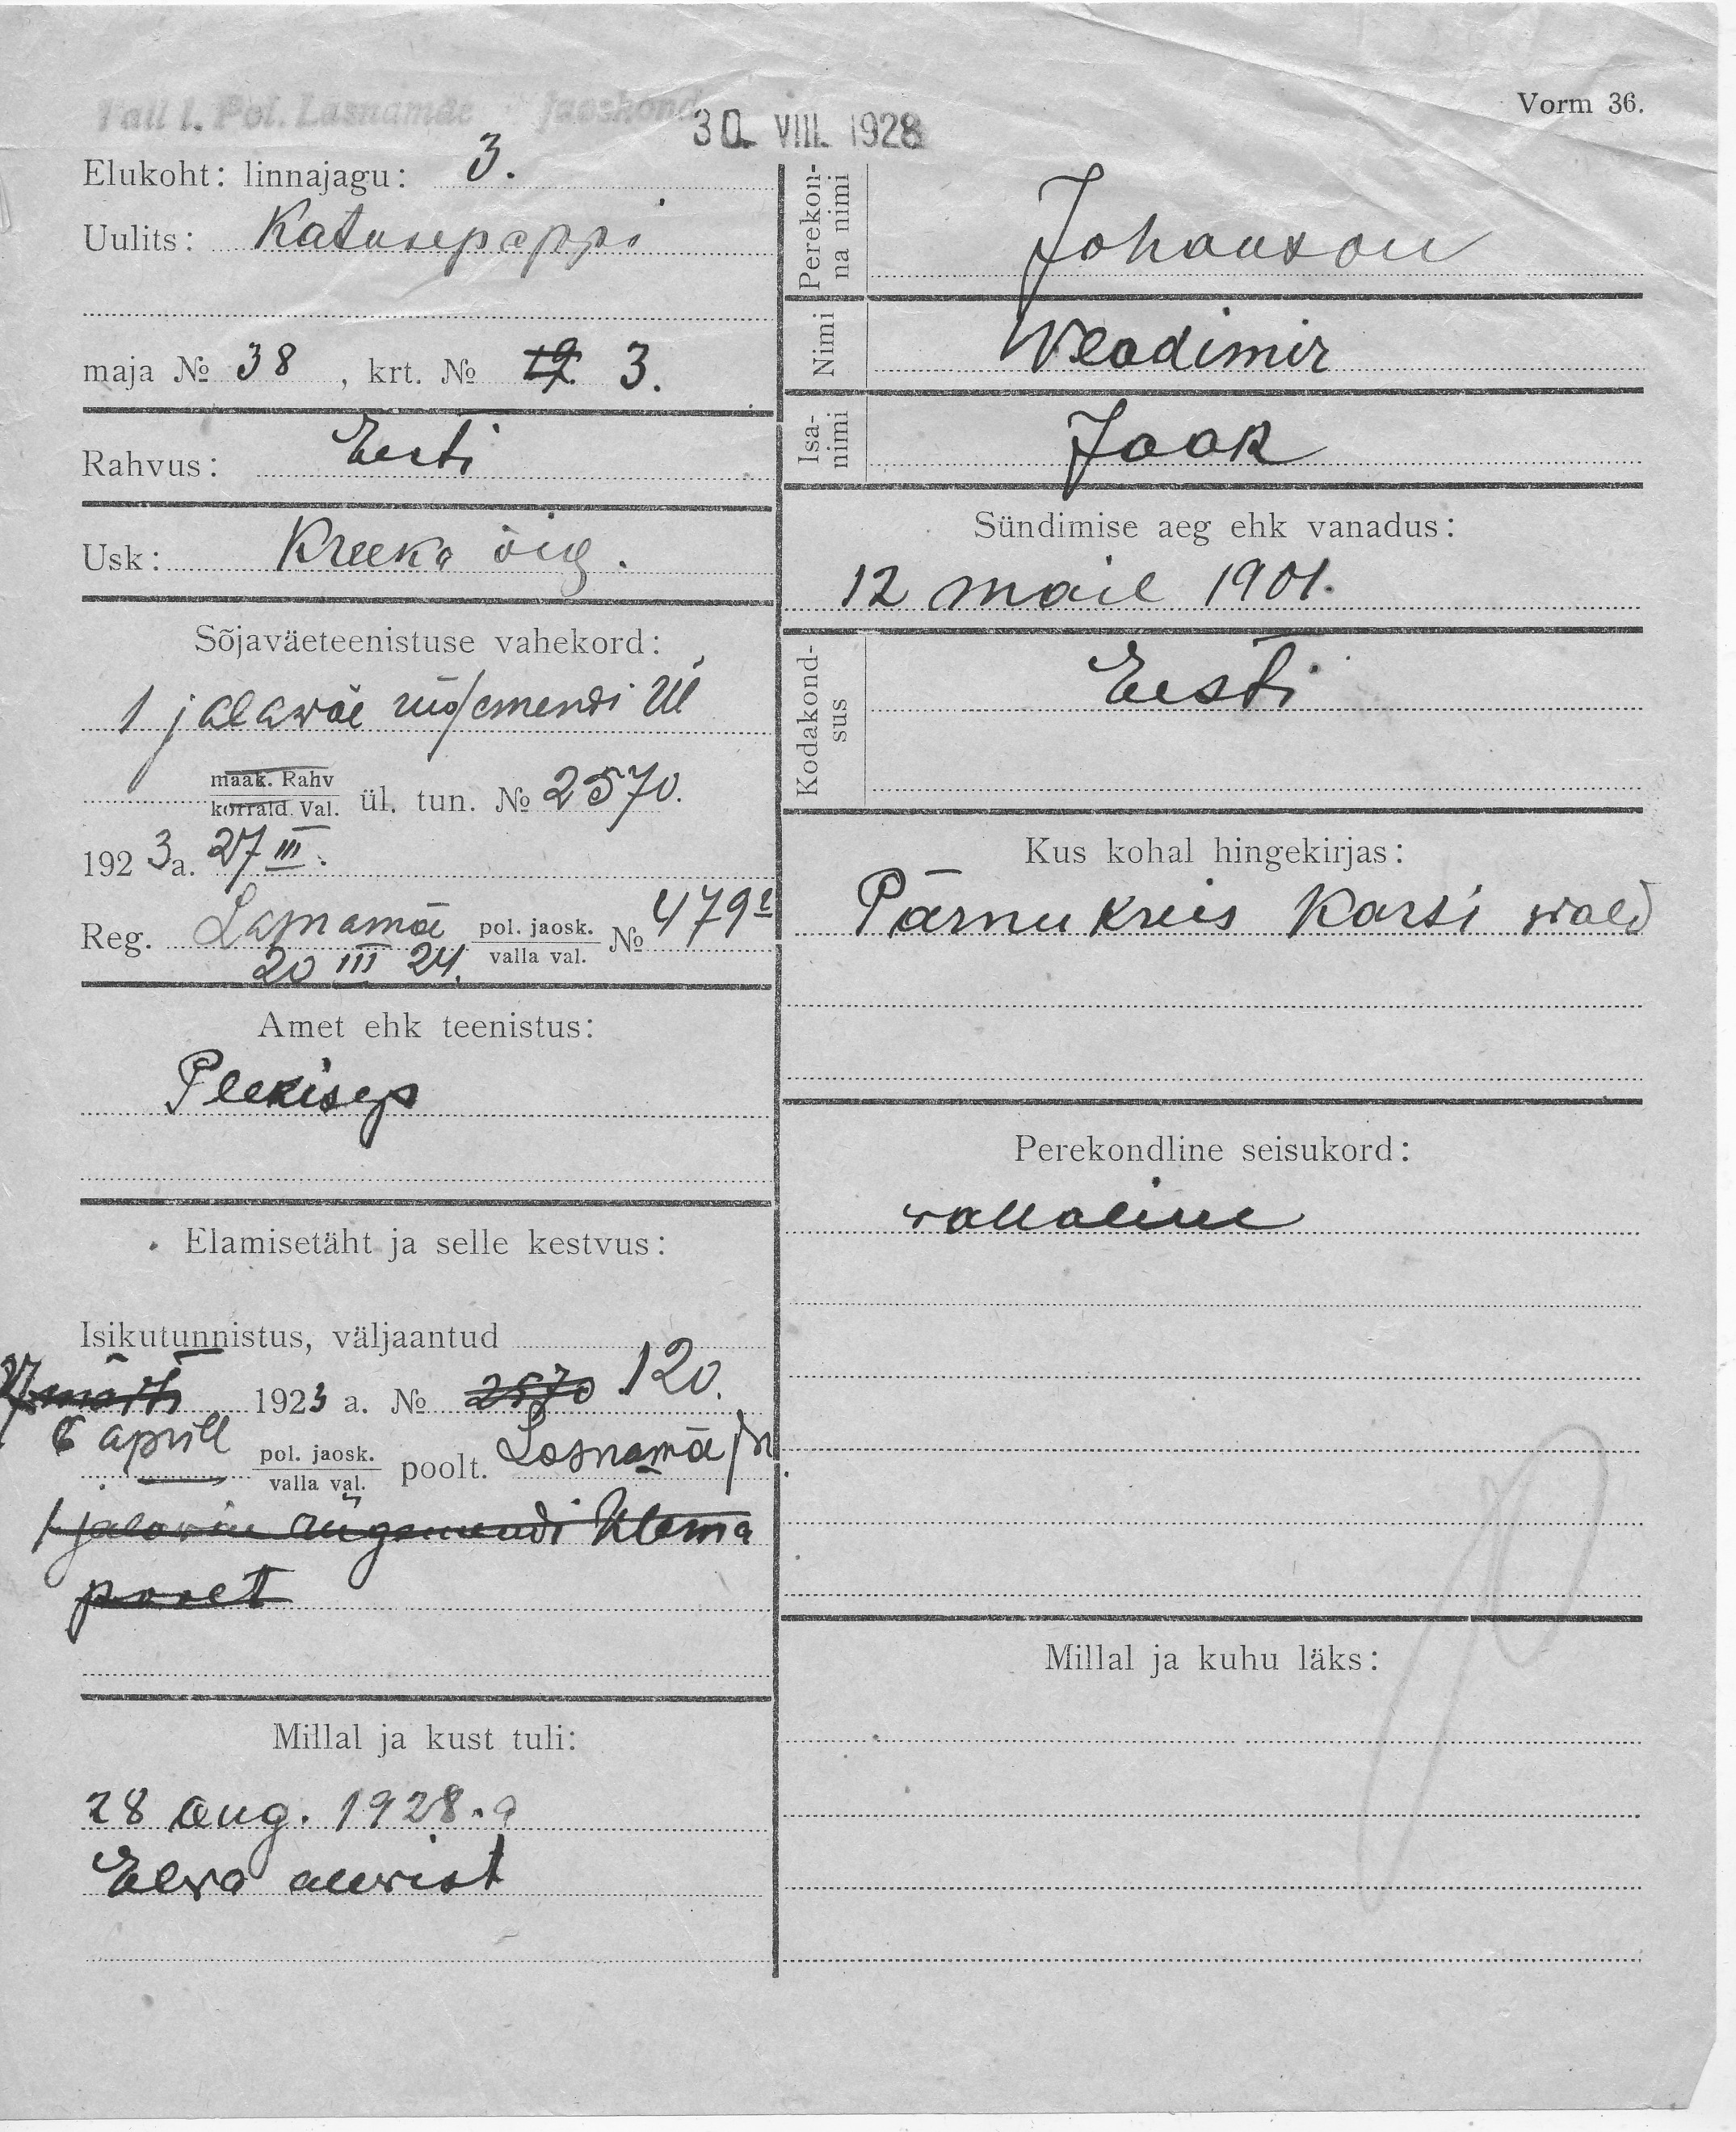 Tall. l. Pol. Lasnamäe jaoskond
30. VIII. 1928
Vorm 36.
Elukoht: linnajagu: 3.
Uulits: Katusepappi
maja № 38, krt. № 3.
Rahvus: Eesti
Usk: Kreeka õig.
Sõjaväeteenistuse vahekord:
1 jalawäe rügemendi Ül
maak. Rahv
korrald. Val. ül. tun. № 2570.
1923a. 27 III.
Reg. Lasnamäe pol. jaosk. № 479
valla val.
20 III 24.
Amet ehk teenistus:
Plekisep
Elamisetäht ja selle kestvus:
Isikutunnistus, väljaantud
27 märts 1923 a. № 2570 120.
6 aprill
pol. jaosk. poolt. Lasnamäe
valla val.
1 jalawäe rügemendi Ülema
poolt
Millal ja kust tuli:
28 aug. 1928.a
Elwa alewist
Perekonna nimi
Johanson
Nimi
Wladimir
Isanimi
Jaak
Sündimise aeg ehk vanadus:
12 mail 1901.
Kodakondsus
Eesti
Kus kohal hingekirjas:
Pärnu kreis Karsi wald
Perekondline seisukord:
wallaline
Millal ja kuhu läks: